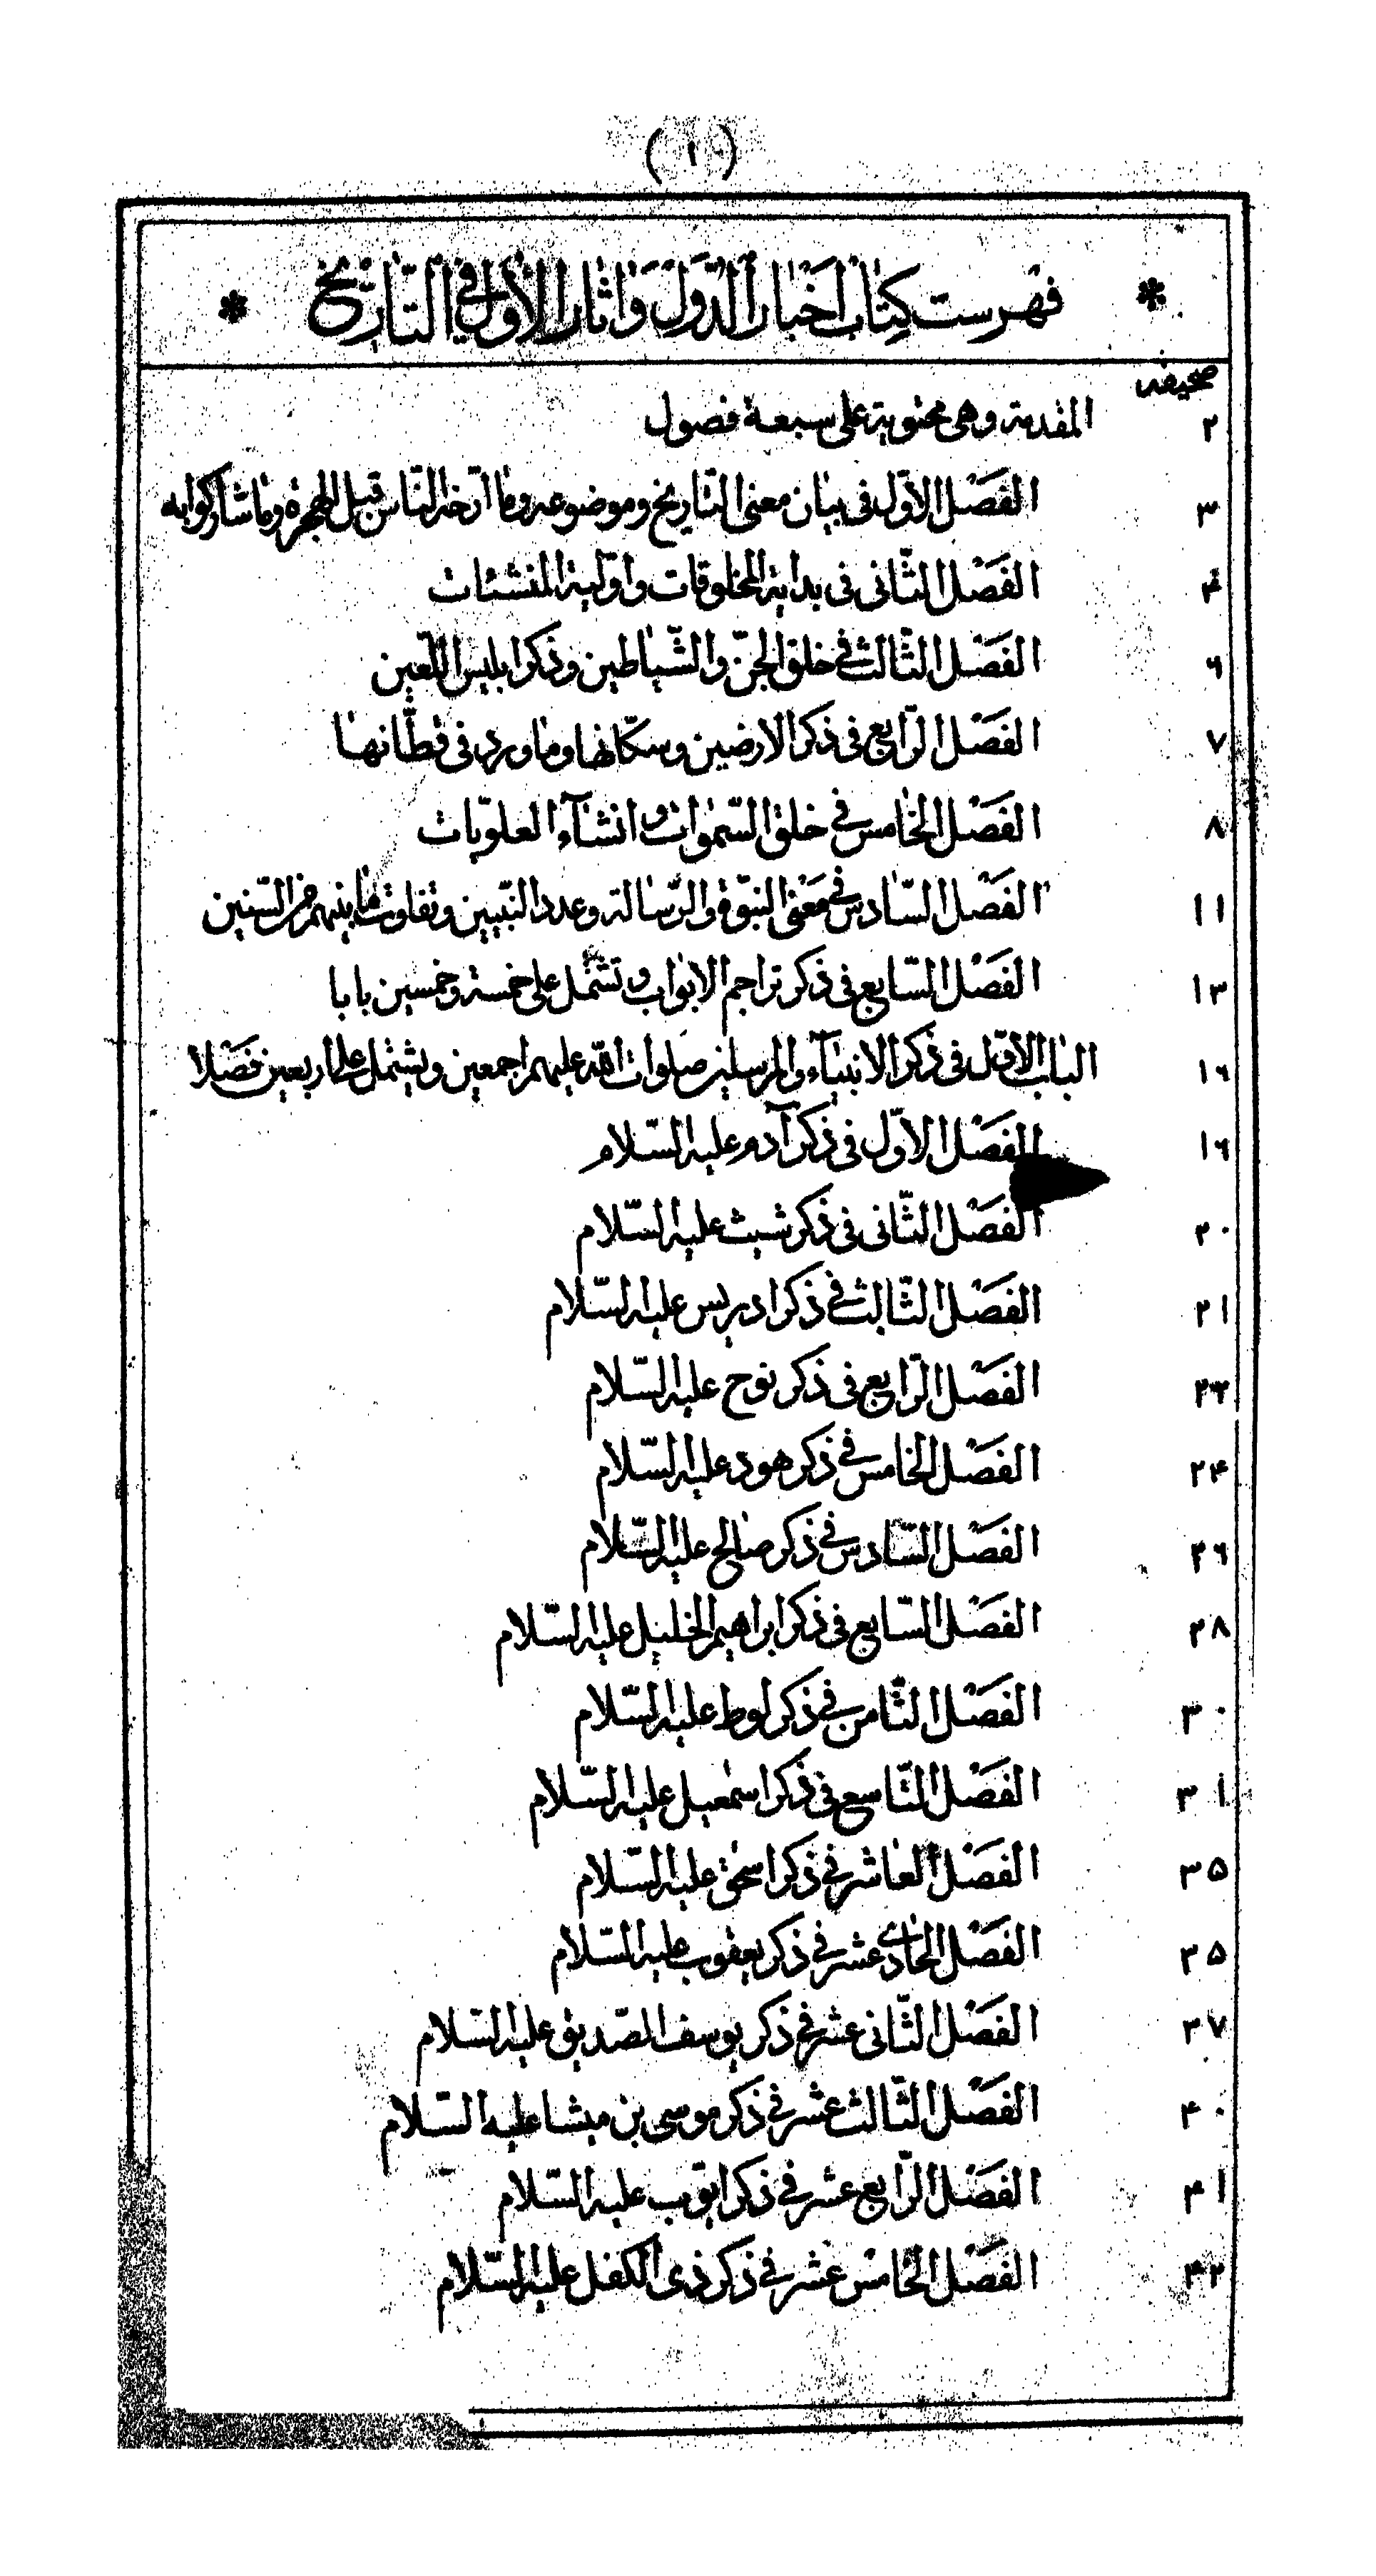 (١)
* فهرست كتاب اخبار الدّول واثار الاول في التّاريخ *
صحيفه
٢ المقدمة وهى محتوية على سبعة فصول
٣ الفصل الاوّل فى بيان معنى التّاريخ وموضوعه وما ارّخه النّاس قبل الهجرة وما
۴ الفصل الثّانى فى بداية المخلوقات واوّلية المنشئات
٦ الفصل الثّالث في خلق الجنّ والشّياطين وذكر ابليس اللّعين
٧ الفصل الرّابع فى ذكر الارضين وسكّانها وما ورد فى قطّانها
٨ الفصل الخامس في خلق السّموات وانشآء العلويّات
١١ الفصل السّادس في معنى النبوّة والرّسالة وعدد النّبيين وتفاوت ما بينهم من السّنين
١٣ الفصل السّابع فى ذكر تراجم الابواب وتشتمل على خمسة وخمسين بابا
١٦ الباب الاوّل فى ذكر الانبيآء والمرسلين صلوات اللّه عليهم اجمعين ويشتمل على اربعين فصلا
١٦ الفصل الاوّل فى ذكر آدم عليه السّلام
٢٠ الفصل الثّانى فى ذكر شيث عليه السّلام
٢١ الفصل الثّالث في ذكر ادريس عليه السّلام
٢٣ الفصل الرّابع فى ذكر نوح عليه السّلام
٢۴ الفصل الخامس في ذكر هود عليه السّلام
٢٦ الفصل السّادس في ذكر صالح عليه السّلام
٢٨ الفصل السّابع فى ذكر ابراهيم الخليل عليه السّلام
٣٠ الفصل الثّامن في ذكر لوط عليه السّلام
٣١ الفصل التّاسع فى ذكر اسمعيل عليه السّلام
٣۵ الفصل العاشر في ذكر اسحق عليه السّلام
٣۵ الفصل الحادي عشر في ذكر يعقوب عليه السّلام
٣٧ الفصل الثّانى عشر في ذكر يوسف الصّديق عليه السّلام
۴٠ الفصل الثّالث عشر في ذكر موسى بن ميشا عليه السّلام
۴١ الفصل الرّابع عشر في ذكر ايّوب عليه السّلام
۴٢ الفصل الخامس عشر في ذكر ذى الكفل عليه السّلام